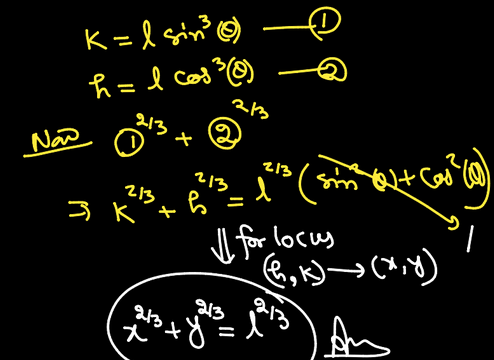 K = l sin³(θ) — ①
h = l cos³(θ) — ②
Now ①^2/3 + ②^2/3
⇒ K^2/3 + h^2/3 = l^2/3 (sin²(θ) + cos²(θ)) 1
⇓ for locus
(h, K) → (x, y)
x^2/3 + y^2/3 = l^2/3 Ans